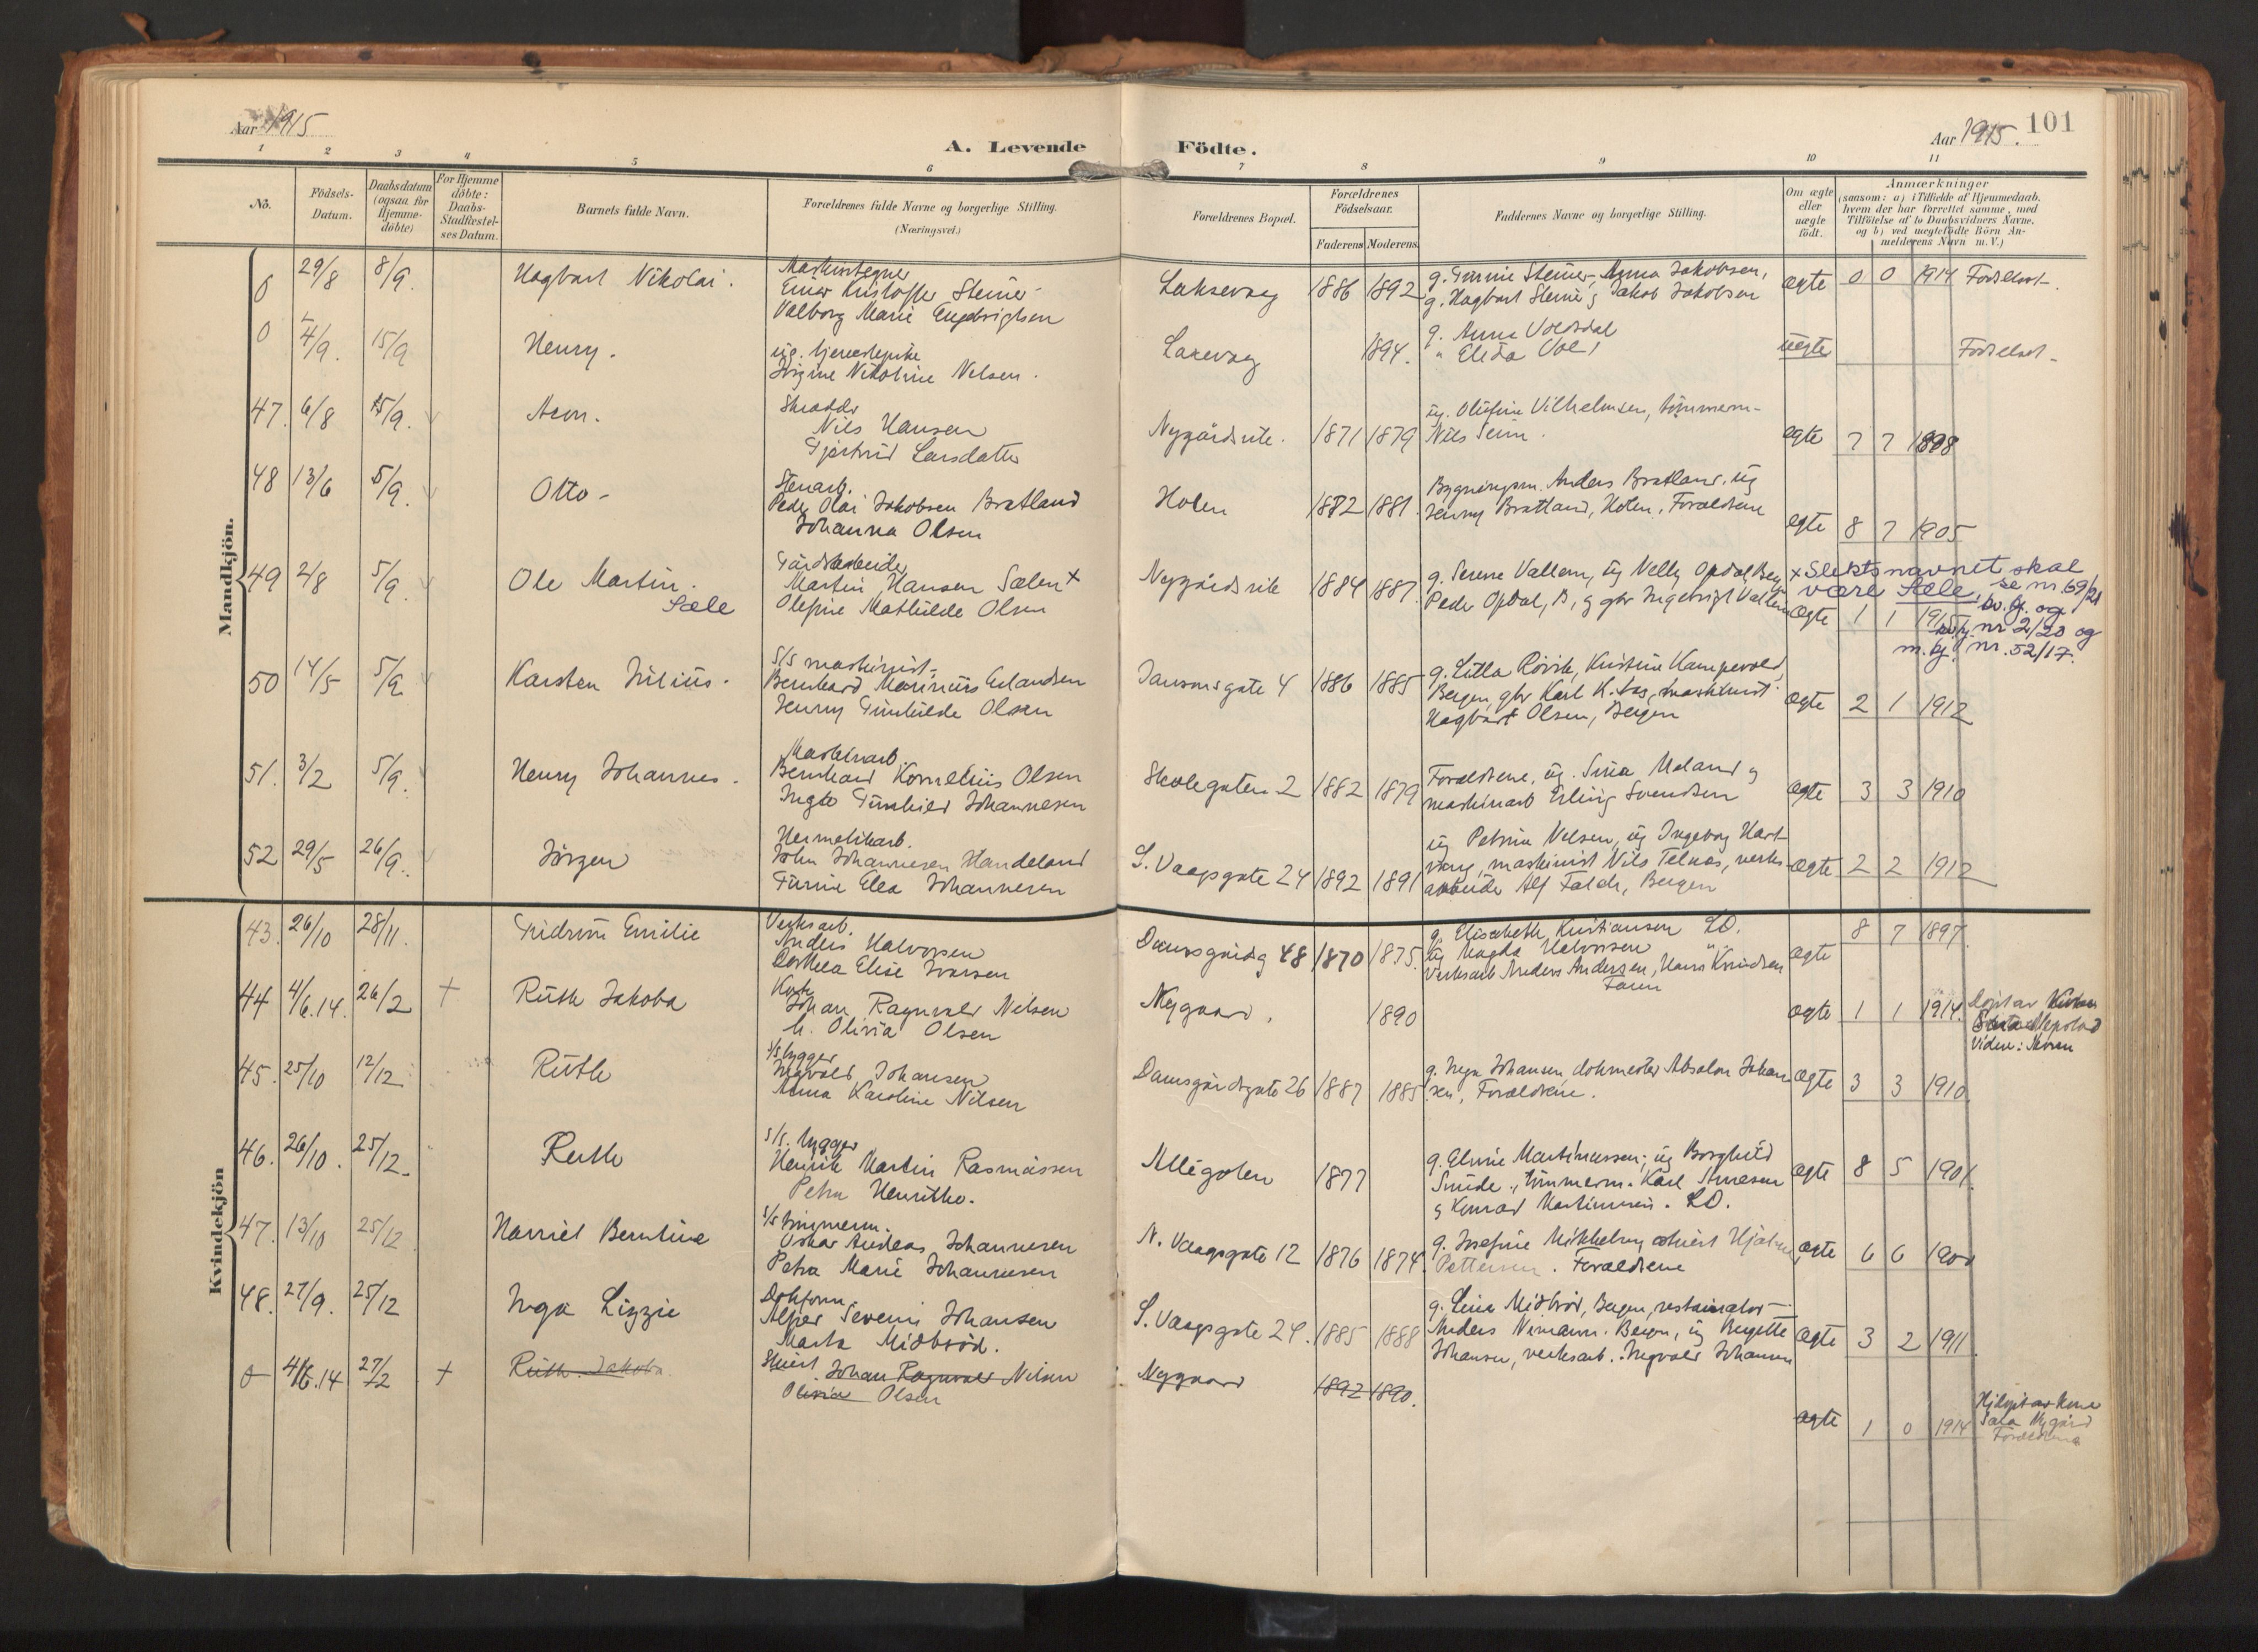 Aar 1915
A. Levende Födte.
Aar 1915. 101
1 2 3 4 5 6 7 8 9 10 11
No. Födsels-Datum. Daabsdatum (ogsaa for Hjemmedöbte) For Hjemmedöbte: Daabs-Stadfæstelses Datum. Barnets fulde Navn. Forældrenes fulde Navne og borgerlige Stilling. (Næringsvei.) Forældrenes Bopæl. Forældrenes Födselsaar. Faderens Moderens Faddernes Navne og borgerlige Stilling. Om ægte eller uægte födt. Anmærkninger (saasom: a) i Tilfælde af Hjemmedaab, hvem der har forrettet samme, med Tilföielse af to Daabsvidners Navne, og b) ved uegtefödte Börn Anmelderens Navn m. V.)
Mandkjön.
0 29/8 8/9. Hagbart Nikolai. Maskintegner
Einar Kristoffer Steiner
Valborg Marie
Laksevaag 1886 1892 g. Steiner, Anna Jakobsen,
g. Hagbart Steiner, Jakob Jakobsen
ægte 0 0 1914 Fødselsat.
0 4/9. 15/9 Henry.
Nikoline Nelsen.
1894. g. Anna
" Elida
uægte
47. 6/8 15/9. Aron. Skrædder
Nils Hansen
Gjertrud Larsdatter
Nygårdsvik. 1871 1879 ug. Olufine Vilhelmsen, tømmerm.
Nils Seim.
ægte 7 7 1898
48 13/6 5/9. Otto. Stenarb.
Peder Olai Jakobsen Bratland
Johanna Olsen
Holen 1882 1881 Bygningsm. Anders Bratland, ug
Jenny Bratland, Holen, Forældrene
ægte 8 7 1905
49 2/8 5/9. Ole Martin.
Sæle
Gårdsarbeider
Martin Hansen Sælen +
Olefine Mathilde Olsen
Nygårdsvik 1884 1887 g. Serene Vallem, ug Nelly Opdal, Bergen
Peder Opdal, B, g gbr Ingebrigt Vallem
ægte 1 1 1915
+ Slektsnavnet skal
være Sæle, se nr. 69/21
og
nr 2/20 og
m. bj. nr. 52/17.
50 14/5 5/9 Karsten Julius. S/S maskinist.
Bernhard Marinius Erlandsen
Jenny Gunhilde Olsen
Jansonsgate 4 1886 1885 g. Lilla Rövik, Kristine
Bergen, gbr Karl
Hagbart Olsen, Bergen
ægte 2 1 1912
51. 3/2 5/9. Henry Johannes. Maskinarb.
Bernhard Kornelius Olsen
Gunhild Johannesen
Skolegaten 2 1882 1879 Forældrene, ug. Sina g
maskinarb Erling Svendsen
ægte 3 3 1910
52 29/5 26/9. Jörgen Hermetikarb.
John Johannesen Handeland
Elea Johannesen
S. Vaagsgate 24 1892 1891 ug Petrine Nelsen, ug Ingeborg
maskinist Nils Telnæs, verks-
arbeide Alf Bergen
ægte 2 2 1912
Kvindekjön
43. 26/10 28/11. Gudrun Emilie Verksarb.
Anders Halvorsen
Dorthea Elise Ivarsen
Damsgårdsg 48 1870 1875. g. Elisabeth Kristiansen LD.
ug Magda Halvorsen "
Verksarb Anders Andersen, Hans Knudsen
ægte 8 7 1897
44 4/6.14. 26/2 + Ruth Jakoba Kok
Johan Ragnvald Nilsen
h. Olivia Olsen
Nygaard. 1890 ægte 1 1 1914.
45. 25/10 12/12 Ruth S/S bygger
Ingvald Johansen
Anna Karoline Nilsen
Damsgårdsgate 26 1887 1885 g. Inga Johansen dokmester Absalon Johan-
sen, Forældrene.
ægte 3 3 1910
46. 26/10. 25/12. Ruth S/S. bygger
Henrik Martin Rasmussen
Petra
Allégaten 1877 g. Elvine Martinussen, ug Borghild
tömmerm. Karl Arnesen
g Konrad Martinussen. LD.
ægte 8 5 1901.
47. 13/10 25/12 Harriet Berntine S/S tömmerm.
Oskar Andreas Johannesen
Petra Marie Johannesen
N. Vaagsgate 12 1876 1874. g. Josefine Mikkelsen,
Pettersen. Forældrene
ægte 6 6 1900
48. 27/9. 25/12 Inga Lizzie
Alfred Severin Johansen
Marta Midbröd.
S. Vaagsgate 24. 1885 1888 g. Lina Midbröd, Bergen, restauratör
Anders Nimann. Bergen, ug Birgitte
Johansen, verksarb. Ingvald Johansen
ægte 3 2 1911
0 4/6.14 27/2 + Ruth Jakoba Johan Ragnvald Nilsen
Olivia Olsen
Nygaard 1892 1890. ægte 1 0 1914
Hjdöpt av Kone
Sara Nygård
Forældrene